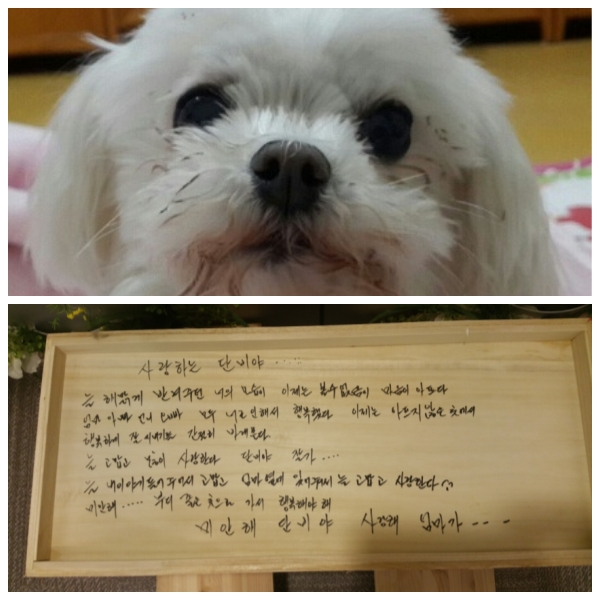 사랑하는 단비야 .....
늘 해맑게 반겨주던 너의 모습이 이제는 볼수 없음이 마음이 아프다
엄마 아빠 언니 오빠 모두 너로 인해서 행복했다 이제는 아프지않은 곳에서
행복하게 잘 지내기를 간절히 바래본다.
늘 고맙고 많이 사랑한다 단비야 잘가 ....
늘 내이야기 들어주어서 고맙고 엄마 옆에 있어줘서 늘 고맙고 사랑한다
미안해 ..... 부디 좋은 곳으로 가서 행복해야 해
미안해 단비야 사랑해 엄마가 - - -